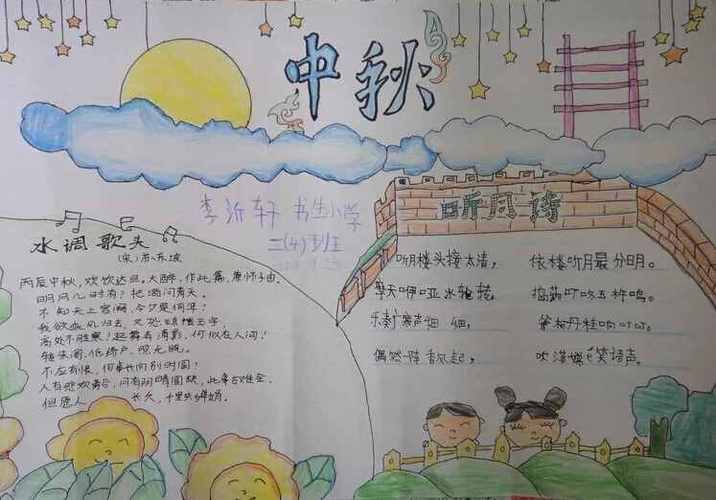 中秋
李沂轩 书生小学
二(4)班
水调歌头
(宋)苏东坡
丙辰中秋,欢饮达旦。大醉,作此篇,兼怀子由。
明月几时有?把酒问青天。
不知天上宫阙,今夕是何年?
我欲乘风归去,又恐琼楼玉宇,
高处不胜寒!起舞弄清影,何似在人间!
转朱阁,低绮户,照无眠。
不应有恨,何事长向别时圆?
人有悲欢离合,月有阴晴圆缺,此事古难全。
但愿人 长久,千里共婵娟。
听月诗
听月楼头接太清, 依楼听月最分明。
摩天咿哑冰轮转, 捣药叮咚玉杵鸣。
乐奏广寒声细细, 斧柯丹桂响叮叮。
偶然一阵香风起, 吹落嫦娥笑语声。